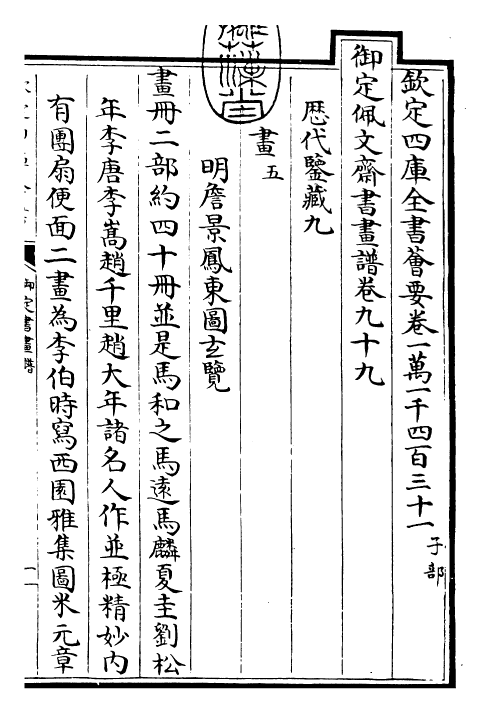 欽定四庫全書薈要卷一萬一千四百三十一
子部
御定佩文齋書畫譜卷九十九
歴代鑒藏九
畫五
明詹景鳳東圖玄覽
畫冊二部約四十冊並是馬和之馬遠馬麟夏圭劉松
年李唐李嵩趙千里趙大年諸名人作並極精妙内
有團扇便面二畫為李伯時寫西園雅集圖米元章
御定書畫譜